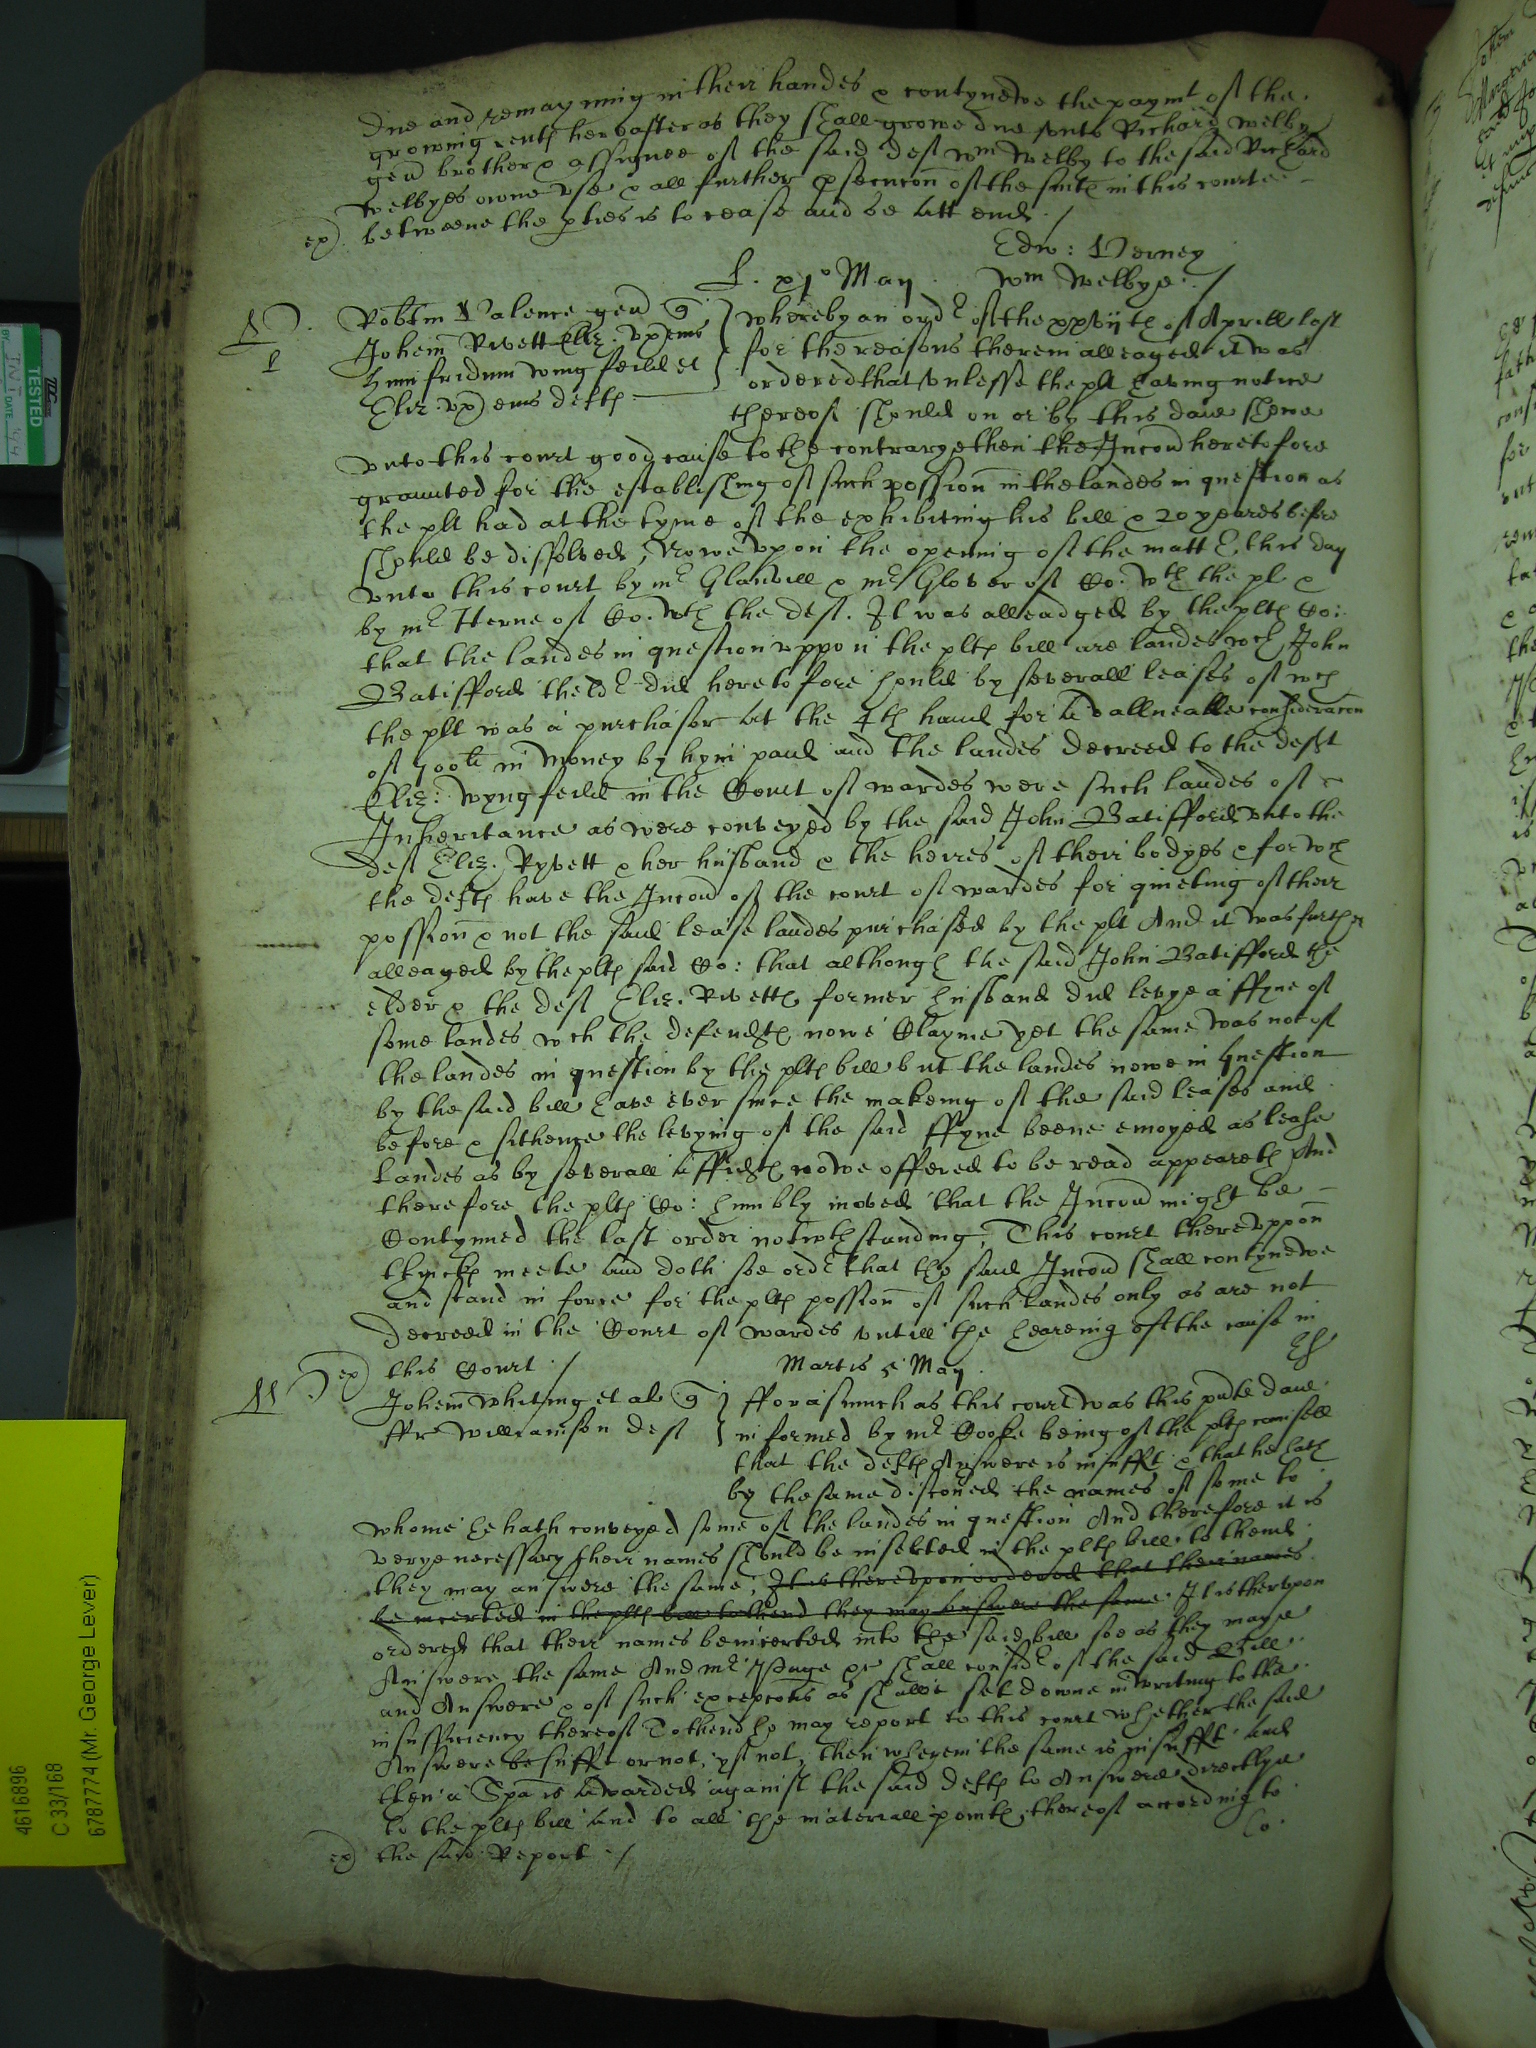 due and remayning in their handes & contynewe the paymt of the
growing rentes hereafter as they shall growe due unto Richard Welby
gen brother & assignee of the said deft Wm Welby to the said Richard
Welbyes owne use & all further prosecucon of the suite in this courte
ex) betweene the pties is to cease and be att end /
Edw: Verney
Wm Welbye /
L. xj° May
Robtm Valence gen q
Johem Rivett Eliz. uxem eius
Humfridum Wingfeild et
Eliz ux eius defts
Whereby an ordr of the xxvijth of Aprill last
for the reasons therein alleaged it was
ordered that unlesse the plt having notice
thereof should on or by this daie shewe
unto this court good cause to the contrarye then the Inccon heretofore
graunted for the establishing of such possion in the landes in question as
the plt had at the tyme of the exhibiting his bill & 20 yeares before
should be dissolved, Nowe upon the opening of the matter this day
unto this court by mr Glanvill & mr Glover of Co. wth the pl &
by mr Herne of Co. wth the deft. It was alleadged by the plts Co:
that the landes in question uppon the plts bill are landes wch John
Batisford theldr did heretofore hould by severall leases of wch
the plt was a purchaser at the 4th hand for a valluable consideracon
of 400li in money by hym paid and the landes decreed to the deft
Eliz: Wyngfeild in the Court of wardes were such landes of
Inheritance as were conveyed by the said John Batisford unto the
deft Eliz. Ryvett & her husband & the heires of their bodyes & for wch
the defts have the Inccon of the court of wardes for quieting of their
possion & not the said lease landes purchased by the plt And it was further
alleaged by the plts said Co: that although the said John Batisford the
elder & the deft Eliz. Rivetts former husband did levye a ffyne of
some landes wch the defendts nowe Clayme yet the same was not of
the landes in question by the plts bill but the landes nowe in question
by the said bill have ever since the makeing of the said leases and
before & sithence the levying of the said ffyne beene enioyed as lease
landes as by severall affidts nowe offered to be read appeareth And
therefore the plts Co: humbly moved that the Inccon might be
Contynued the last order notwthstanding, This court thereuppon
thincks meete and doth soe ordr that the said Inccon shall contynewe
and stand in force for the plts possion of such landes only as are not
decreed in the Court of wardes untill the heareing of the cause in
ex) this Court /
Martis 5 May
Johem Whiting et al q
ffr Williamson deft
fforasmuch as this court was this pnte daie
informed by mr Cooke being of the plts counsell
that the defts Answere is insufft & that he hath
by the same discoved the names of some to
whome he hath conveyed some of the landes in question And therefore it is
verye necessary their names should be inserted in the plts bill to thend
they may answere the same, It is thereupon ordered that their names
be incerted in the plts bill to thend they may answere the same It is therupon
ordered that their names be incerted into the said bill soe as they maye
Answere the same And mr Page shall considr of the said Bill
and Answere & of such excepcons as shalbe set downe in writing to the
insufficiency thereof Tothend he may report to this court whether the said
Answere be sufft or not, yf not, then wherein the same is insufft and
then a Spa is awarded against the said defts to Answere directlye
to the plts bill and to all the materiall points thereof according to
ex) the said Report /
TESTED
4616896
C 33/168
6787774 (Mr. George Lever)